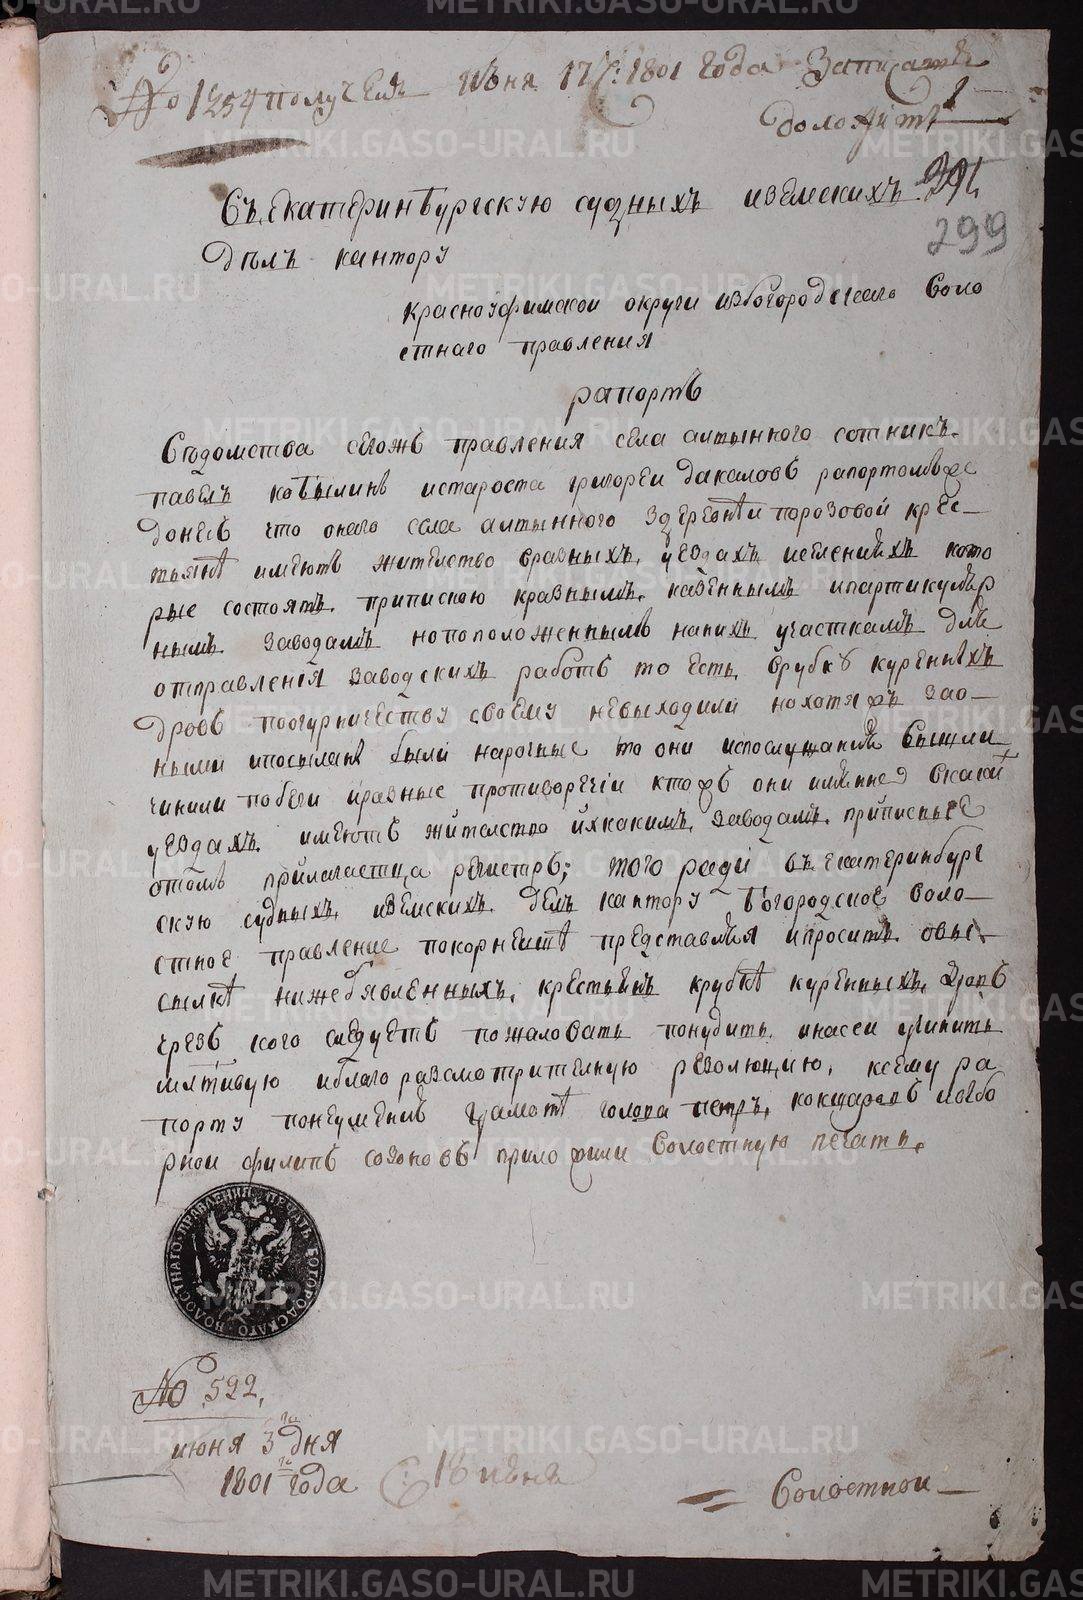 № 1254 получен июня 17: 1801 года Записать
доложить
Въ Екатеринбургскую судныхъ иземскихъ 291
299
дѣлъ кантору
Красноуфимской округи изБогородского Воло
стнаго правления
рапортъ
Ведомства сегожъ правления села алтынного сотникъ
павелъ ковылинъ истароста григореи дакаловъ рапортомъже
донесъ что оного села алтынного здеревни порозовой крес-
тьянѣ имеютъ жителство вразныхъ уездахъ иселенияхъ кото
рые состоятъ припискою кразнымъ казеннымъ ипартикуляр
нымъ заводамъ нопоположеннымъ наних участкамъ для
отправления заводскихъ работъ то есть врубку куренныхъ
дровъ поогурничеству своему невыходили нохотя жъ зао-
ными ипосыланы были нарочные то они испослушания вышли
чинили побеги иразные противоречии ктожъ они имянне вкакой
уездахъ имеютъ жителство икакимъ заводамъ приписные
отомъ прилагаетца регистръ; того ради въ екатеринбург
скую судныхъ иземскихъ делъ кантору Богородское воло-
стное правление покорнеишѣ представляя ипроситъ овы-
сылкѣ нижеявленныхъ крестьянъ крубкѣ куренныхъ дровъ
чрезъ кого следуетъ пожаловать понудить инасеи учинить
милостивую иблагоразсмотрителную резолюцию, ксему ра
порту понеумениѣ грамотѣ голова петръ кокшаровъ ивыбо
рнои филипъ созоновъ приложили Волостную печать.
ПЕЧАТЬ БОГОРОДСКАГО ВОЛОСТНАГО ПРАВЛЕНИЯ
№ 522.
июня 3го дня
1801го года
18 июня
Волостнои
METRIKI.GASO-URAL.RU